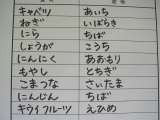 キャベツ あいち
ねぎ いばらき
にら ちば
しょうが こうち
にんにく あおもり
もやし とちぎ
こまつな さいたま
にんじん ちば
キウイフルーツ えひめ